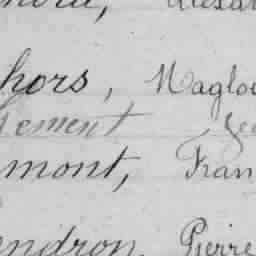 hors, Magloi
ement
mont, Fran
ndron, Pierre